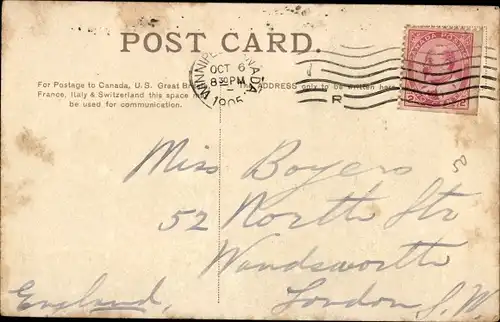 POST CARD.
WINNIPEG, CANADA
OCT 6
8 30 PM
1905
R
CANADA POSTAGE
2 2
For Postage to Canada, U.S. Great
France, Italy & Switzerland this space
be used for communication.
The ADDRESS only to be written here
Miss Boyers
52 North Str
Wandsworth
London S.W.
England,